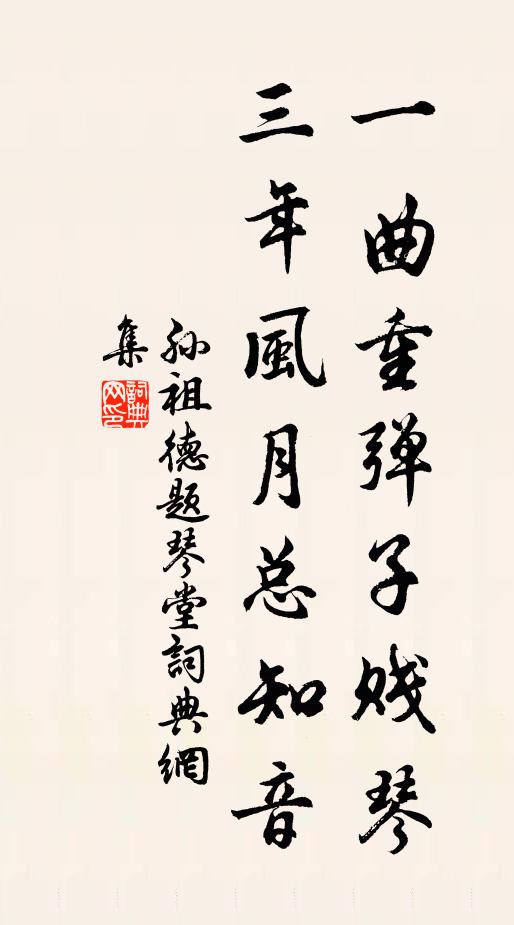 一曲重弹子贱琴
三年風月总知音
孙祖德题琴堂詞典網
集
詞典网印